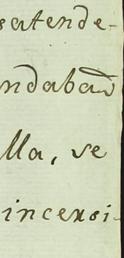 satende-
ndabaõ
lla, se
incensi-